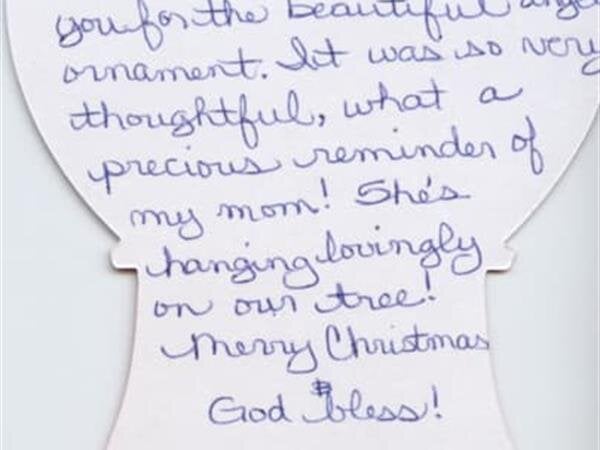 you for the beautiful angel
ornament. It was so very
thoughtful, what a
precious reminder of
my mom! She's
hanging lovingly
on our tree!
Merry Christmas
God bless!